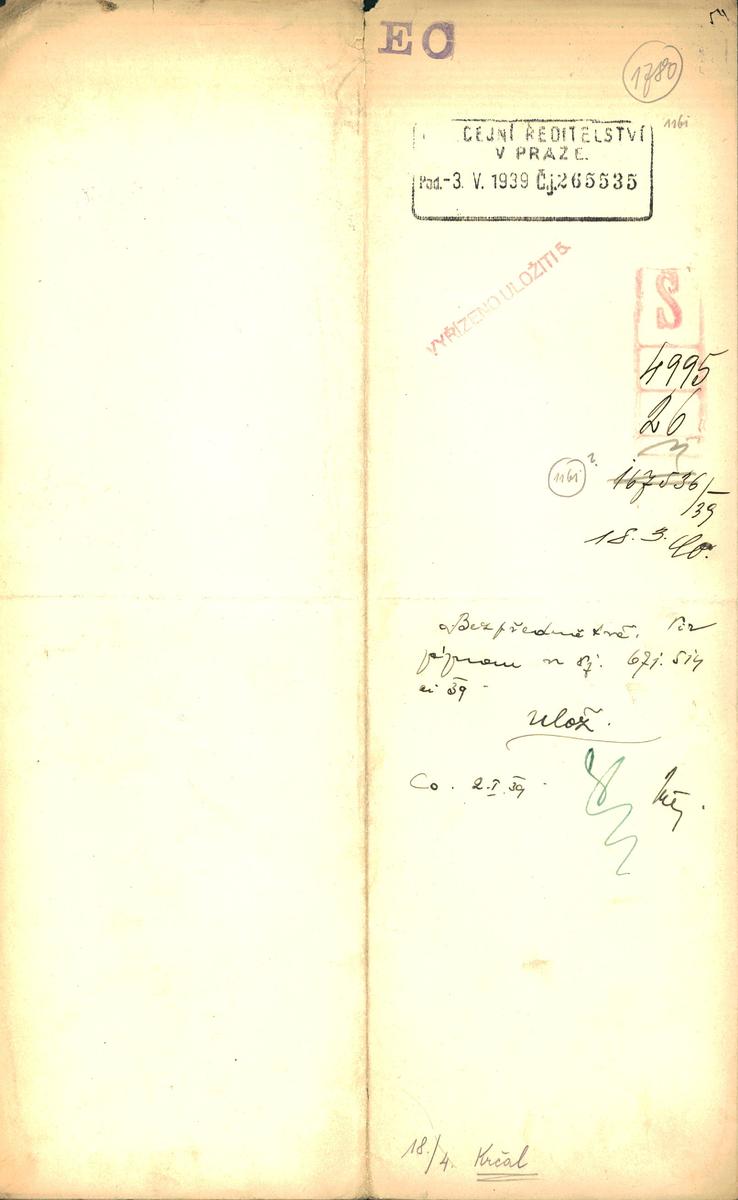 54
EC
1780
1161
CEJNÍ ŘEDITELSTVÍ
V PRAZE.
Pod.-3. V. 1939 Čj.265535
VYŘÍZENO ULOŽITI 5.
S
4995
26
1161 ?
167536/
39
18. 3.
Bezpředmětné. Viz
671. 514
39
Ulož.
Co. 2.I.39
18./4. Krčal